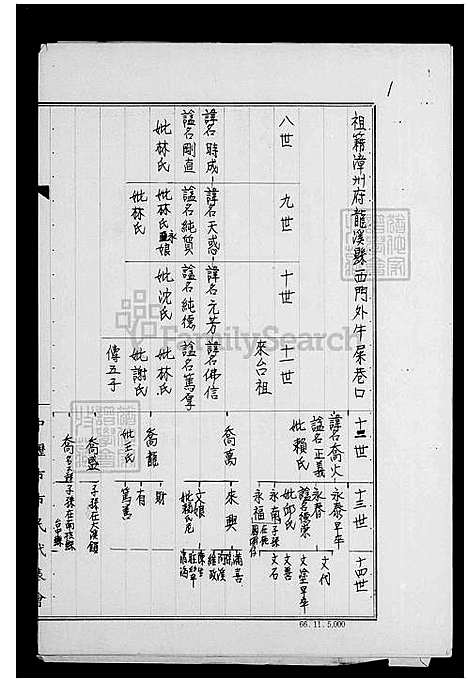 1
祖籍漳州府龍溪縣西門外牛屎巷口
八世
諱名時成
諡名剛直
妣林氏
九世
諱名天惑
諡名純質
妣林氏
妣林氏
十世
諱名元芳
諡名純德
妣沈氏
十一世
來台祖
諱名佛信
諡名篤享
妣林氏
妣謝氏
傳五子
十二世
諱名喬火
諡名正義
妣賴氏
喬萬
喬龍
妣王氏
喬盛
十三世
永泰早卒
永春
諡名德榮
妣邱氏
永南
永福
來興
文娘
財
有
篤
子孫在大溪鎮
十四世
文代
文塗早卒
文善
文石
滿喜
維政
中壢市市民代表會
66.11.5,000
FamilySearch